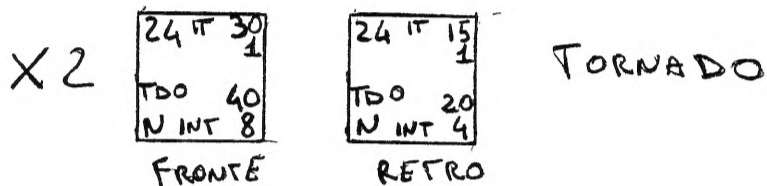 X2
24 IT 30
1
TDO 40
N INT 8
FRONTE
24 IT 15
1
TDO 20
N INT 4
RETRO
TORNADO